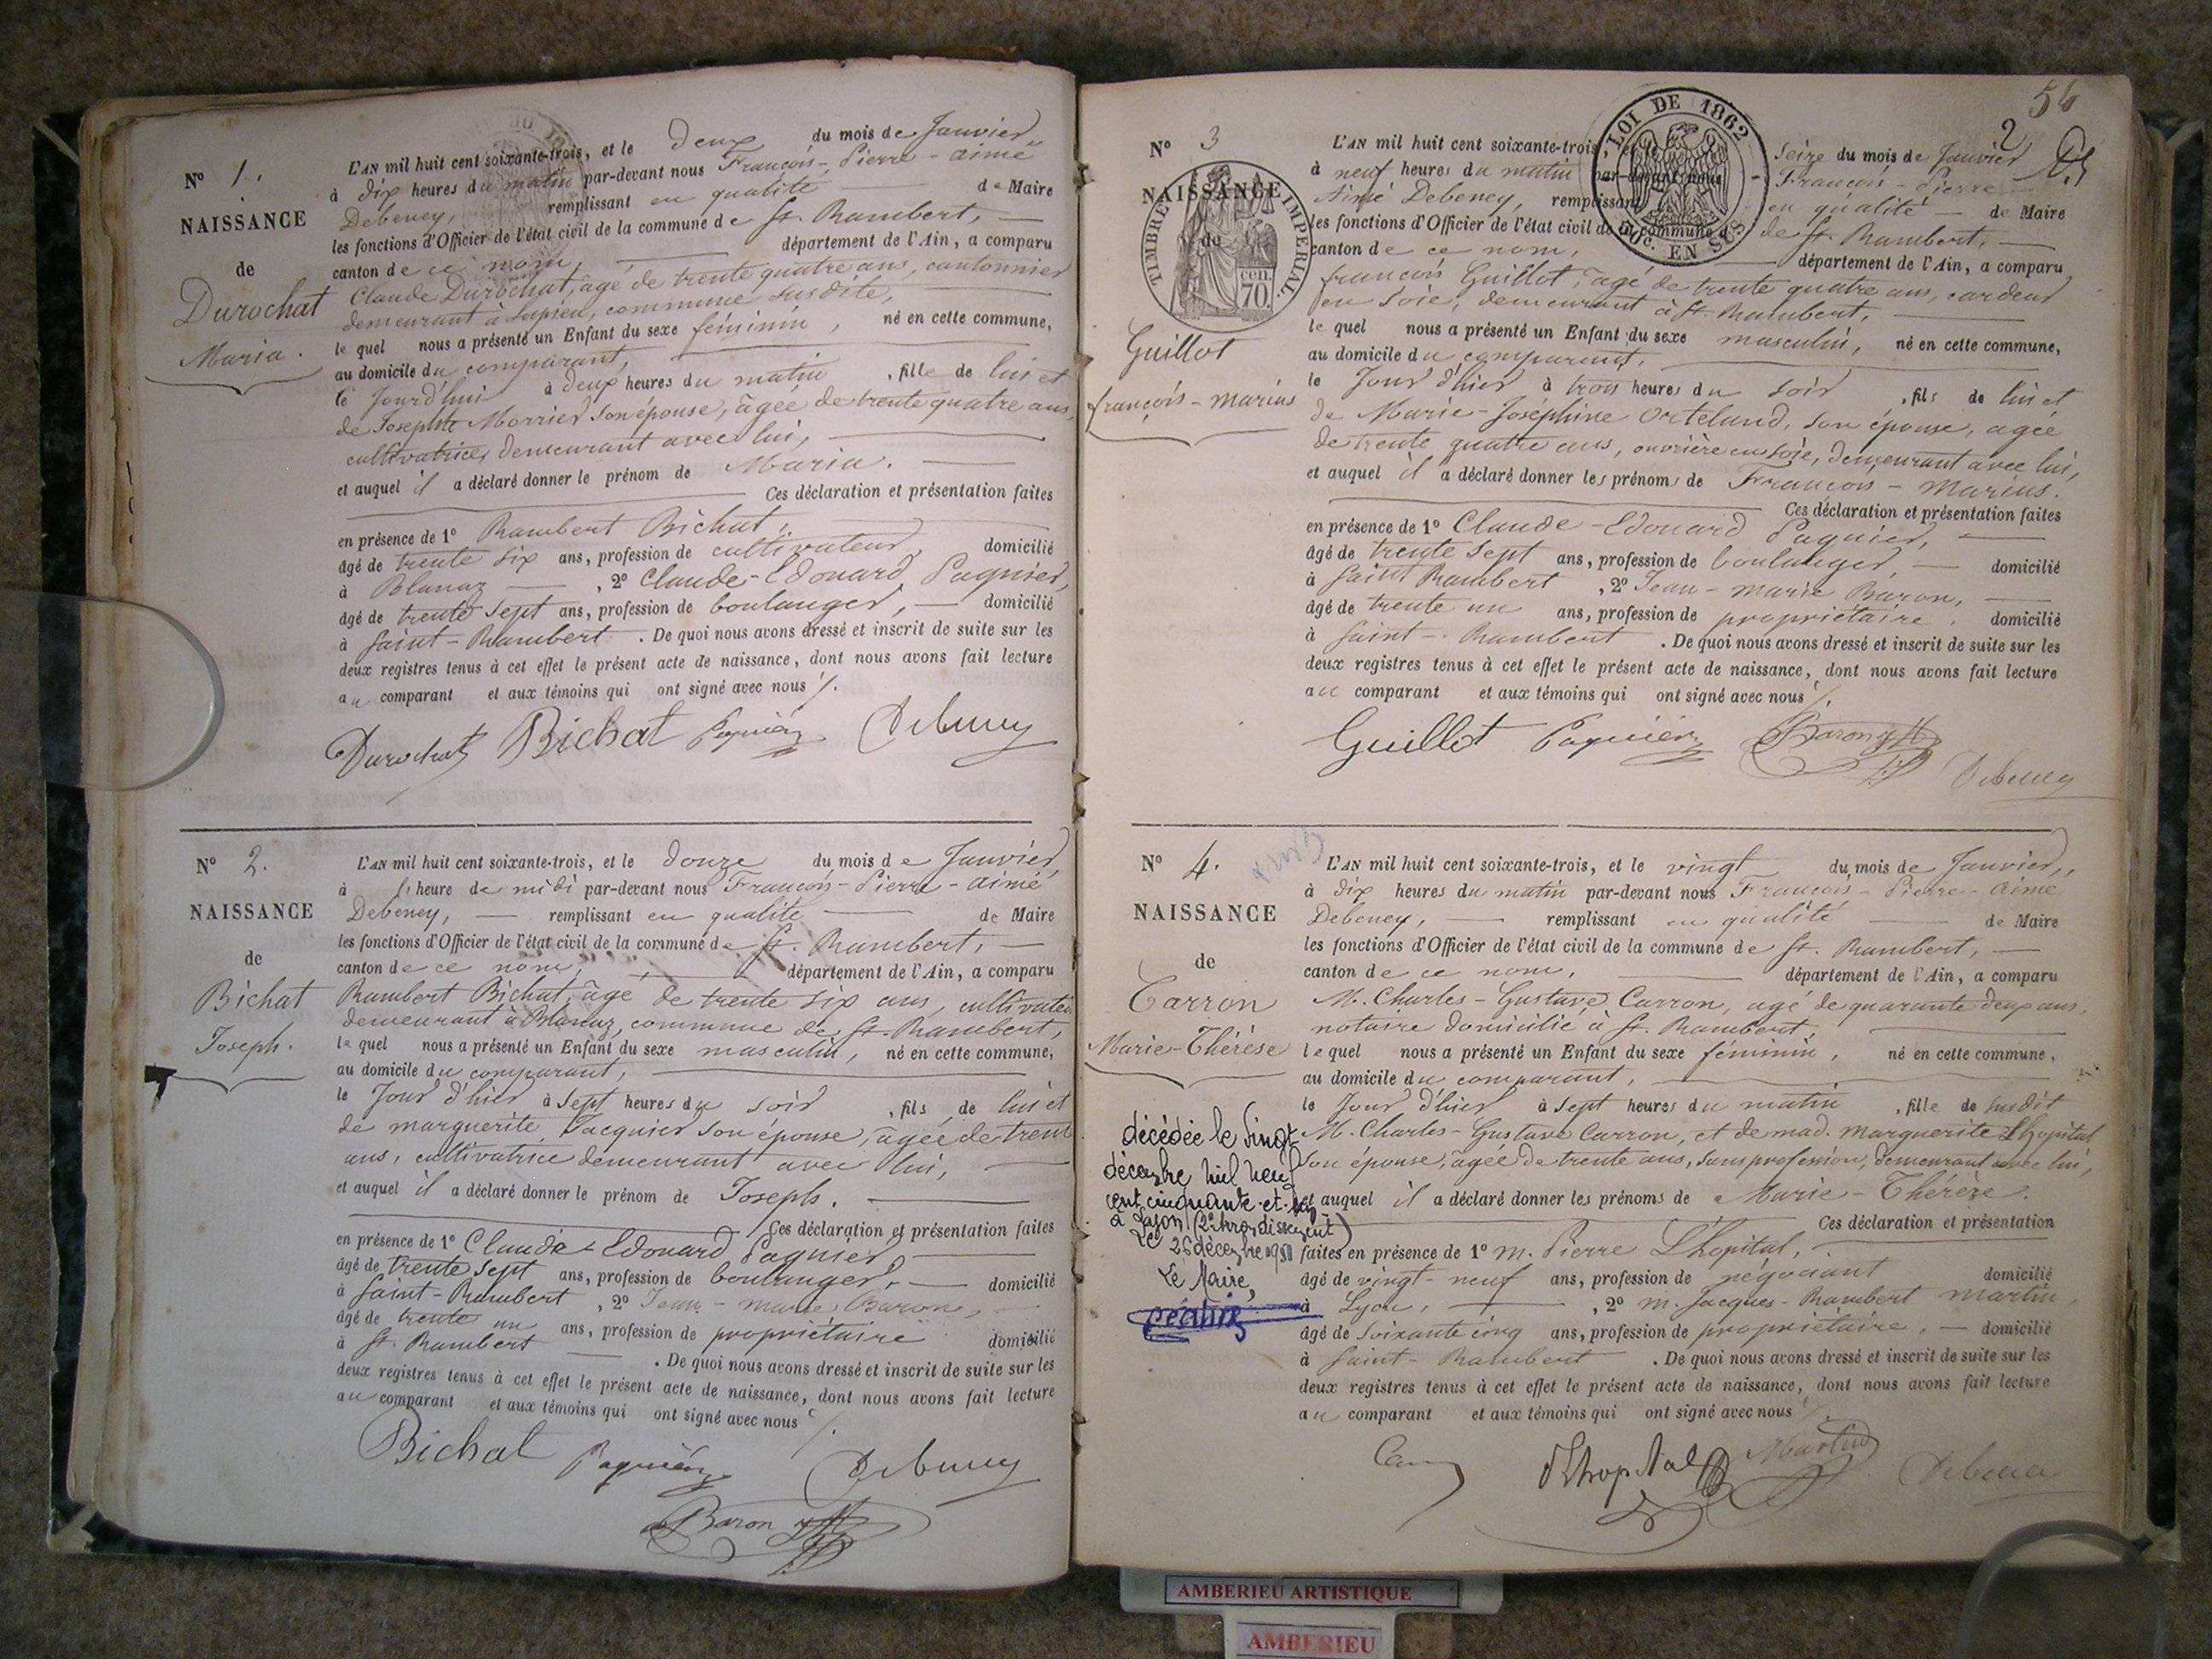 N° 1.
NAISSANCE
de
Durochat
Maria.
L'AN mil huit cent soixante-trois, et le deux du mois de Janvier
à dix heures du matin par-devant nous François-Pierre-aimé
Debeney, remplissant en qualité de Maire
les fonctions d'Officier de l'état civil de la commune de St. Rambert,
canton de ce nom, département de l'Ain, a comparu
Claude Durochat, âgé de trente quatre ans, cantonnier
demeurant à Lupieu, commune susdite,
le quel nous a présenté un Enfant du sexe féminin, né en cette commune,
au domicile du comparant,
le Jourd'hui à deux heures du matin, fille de lui et
de Josephte Morrier son épouse, âgée de trente quatre ans,
cultivatrice, demeurant avec lui,
et auquel il a déclaré donner le prénom de Maria.
Ces déclaration et présentation faites
en présence de 1° Rambert Bichat,
âgé de trente six ans, profession de cultivateur, domicilié
à Blanaz, 2° Claude-Edouard Paquier,
âgé de trente sept ans, profession de boulanger, domicilié
à Saint-Rambert. De quoi nous avons dressé et inscrit de suite sur les
deux registres tenus à cet effet le présent acte de naissance, dont nous avons fait lecture
au comparant et aux témoins qui ont signé avec nous ./.
Durochat Bichat Paquier Debeney
N° 2.
NAISSANCE
de
Bichat
Joseph.
L'AN mil huit cent soixante-trois, et le douze du mois de Janvier,
à l'heure de midi par-devant nous François-Pierre-aimé
Debeney, remplissant en qualité de Maire
les fonctions d'Officier de l'état civil de la commune de St. Rambert,
canton de ce nom, département de l'Ain, a comparu
Rambert Bichat, âgé de trente six ans, cultivateur
demeurant à Blanaz, commune de St. Rambert,
le quel nous a présenté un Enfant du sexe masculin, né en cette commune,
au domicile du comparant,
le Jour d'hier à sept heures du soir, fils de lui et
de marguerite Jacquier son épouse, âgée de trente
ans, cultivatrice demeurant avec lui,
et auquel il a déclaré donner le prénom de Joseph.
Ces déclaration et présentation faites
en présence de 1° Claude-Edouard Paquier,
âgé de trente sept ans, profession de boulanger, domicilié
à Saint-Rambert, 2° Jean-marie Baron,
âgé de trente un ans, profession de propriétaire domicilié
à St. Rambert. De quoi nous avons dressé et inscrit de suite sur les
deux registres tenus à cet effet le présent acte de naissance, dont nous avons fait lecture
au comparant et aux témoins qui ont signé avec nous ./.
Bichat Paquier Debeney
Baron
54
2
N° 3
NAISSANCE
de
TIMBRE IMPERIAL.
70 cen.
LOI DE 1862
DOC. EN SUS
Guillot
françois-marius
L'AN mil huit cent soixante-trois, et le Seize du mois de Janvier
à neuf heures du matin par-devant nous François-Pierre-
Aimé Debeney, remplissant en qualité de Maire
les fonctions d'Officier de l'état civil de la commune de St. Rambert,
canton de ce nom, département de l'Ain, a comparu
françois Guillot, âgé de trente quatre ans, cardeur
en soie, demeurant à St. Rambert,
le quel nous a présenté un Enfant du sexe masculin, né en cette commune,
au domicile du comparant,
le Jour d'hier à trois heures du soir, fils de lui et
de Marie-Joséphine Orteland, son épouse, agée
de trente quatre ans, ouvrière en soie, demeurant avec lui,
et auquel il a déclaré donner les prénoms de François-marius.
Ces déclaration et présentation faites
en présence de 1° Claude-Edouard Paquier,
âgé de trente sept ans, profession de boulanger, domicilié
à Saint Rambert, 2° Jean-marie Baron,
âgé de trente un ans, profession de propriétaire, domicilié
à Saint-Rambert. De quoi nous avons dressé et inscrit de suite sur les
deux registres tenus à cet effet le présent acte de naissance, dont nous avons fait lecture
au comparant et aux témoins qui ont signé avec nous ./.
Guillot Paquier Baron
Debeney
N° 4.
NAISSANCE
de
Carron
Marie-Thérèse
L'AN mil huit cent soixante-trois, et le vingt du mois de Janvier,
à dix heures du matin par-devant nous François-Pierre-aimé
Debeney, remplissant en qualité de Maire
les fonctions d'Officier de l'état civil de la commune de St. Rambert,
canton de ce nom, département de l'Ain, a comparu
M. Charles-Gustave Carron, agé de quarante deux ans,
notaire domicilié à St. Rambert,
le quel nous a présenté un Enfant du sexe féminin, né en cette commune,
au domicile du comparant,
le Jour d'hier à sept heures du matin, fille de susdit
M. Charles-Gustave Carron, et de mad. marguerite Lhopital
son épouse, âgée de trente ans, sans profession, demeurant avec lui,
et auquel il a déclaré donner les prénoms de Marie-Thérèze.
Ces déclaration et présentation
faites en présence de 1° m. Pierre L'hopital,
âgé de vingt-neuf ans, profession de négociant domicilié
à Lyon, 2° m. Jacques-Rambert martin,
âgé de soixante cinq ans, profession de propriétaire, domicilié
à Saint-Rambert. De quoi nous avons dressé et inscrit de suite sur les
deux registres tenus à cet effet le présent acte de naissance, dont nous avons fait lecture
au comparant et aux témoins qui ont signé avec nous
Lhopital Martin Debeney
décédée le vingt
décembre mil neuf
cent cinquante-et-un
à Lyon (2e Arrondissement)
Le 26 décembre 1951
Le Maire,
AMBERIEU ARTISTIQUE
AMBERIEU